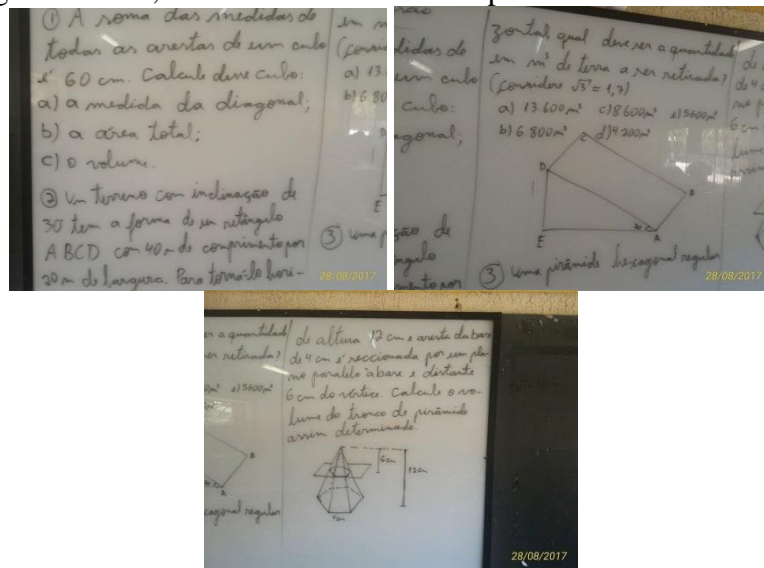 ① A soma das medidas de
todas as arestas de um cubo
é 60 cm. Calcule desse cubo:
a) a medida da diagonal;
b) a área total;
c) o volume.
② Um terreno com inclinação de
30° tem a forma de um retângulo
ABCD com 40 m de comprimento por
20 m de largura. Para torná-lo hori-
28/08/2017
zontal, qual deve ser a quantidade
em m³ de terra a ser retirada?
(considere √3 = 1,7)
a) 13.600 m³ c) 8600 m³ e) 5600 m³
b) 6.800 m³ d) 4200 m³
C
D
B
E
A
③ Uma pirâmide hexagonal regular
28/08/2017
de altura 12 cm e aresta da base
de 4 cm é seccionada por um pla-
no paralelo à base e distante
6 cm do vértice. Calcule o vo-
lume do tronco de pirâmide
assim determinado.
6 cm
12 cm
28/08/2017